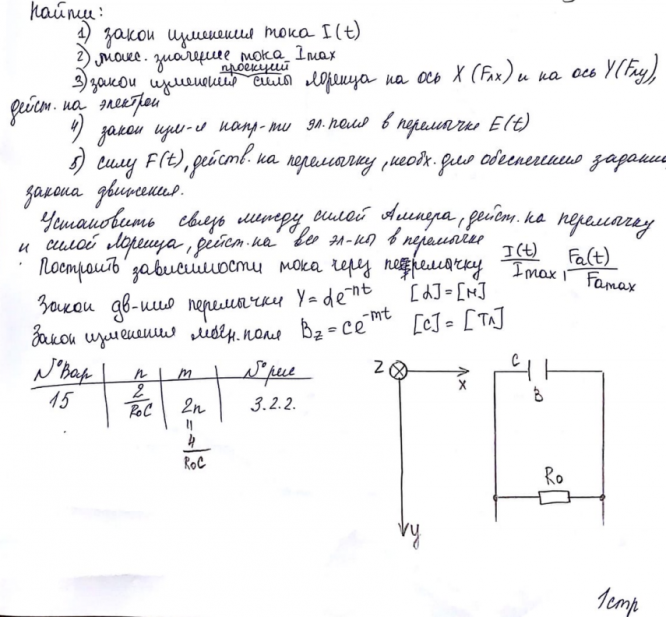 Найти:
1) закон изменения тока I(t)
2) макс. значение тока Imax
проекций
3) закон изменения силы Лоренца на ось X (Fлx) и на ось Y (Fлy),
дейст. на электрон
4) закон изм-я напр-ти эл. поля в перемычке E(t)
5) силу F(t), действ. на перемычку, необх. для обеспечения задани
закона движения.
Установить связь между силой Ампера, дейст. на перемычку
и силой Лоренца, дейст. на все эл-ны в перемычке
Построить зависимости тока через перемычку I(t)/Imax, Fa(t)/Famax
Закон дв-ния перемычки Y = de^-nt [d] = [м]
Закон изменения магн. поля Bz = ce^-mt [c] = [Тл]
N°Вар n m N°рис
15 2/R0C 2n 3.2.2.
=
4/R0C
Z X
y
C
B
R0
1стр